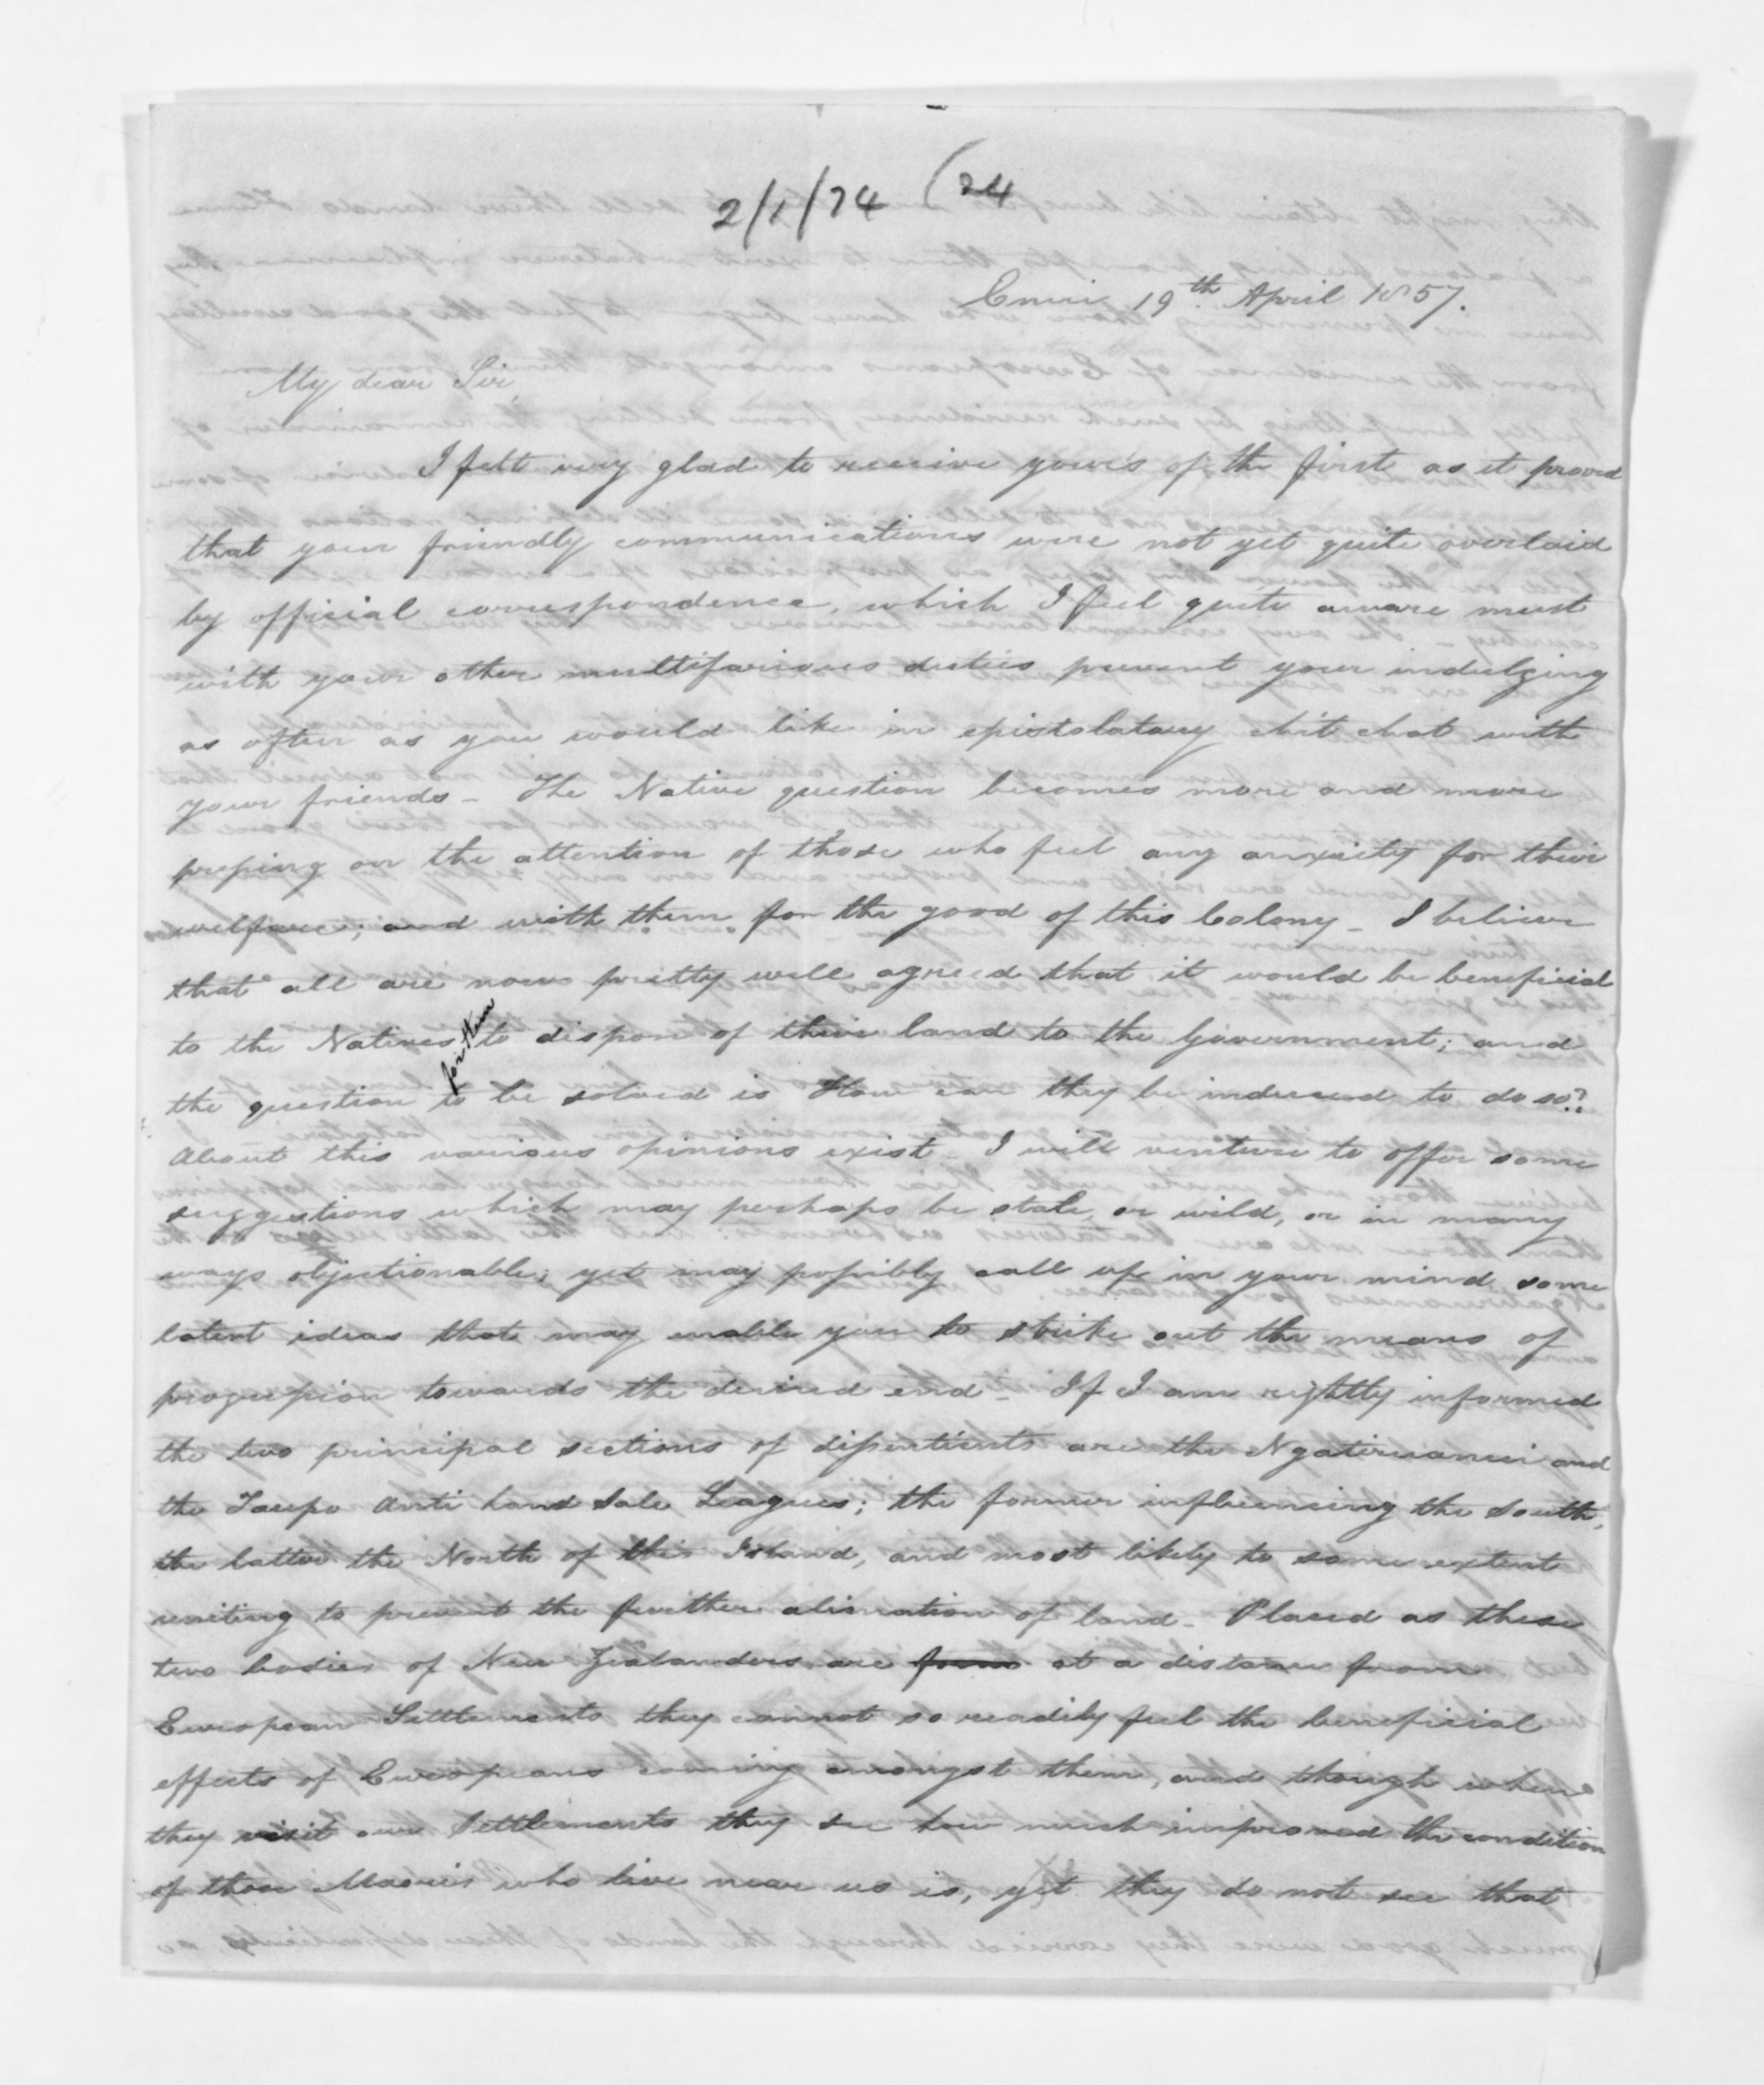 2/1/74 (24
Enui 19th April 1857.
My dear Sir,
I felt very glad to receive your's of the first as it proved
that your friendly communications were not yet quite overlaid
by official correspondence, which I feel quite aware must
with your other multifarious duties prevent your indulging
as often as you would like in epistolatary chit chat with
your friends - The Native question becomes more and more
pressing on the attention of those who feel any anxiety for their
welfare; and with them for the good of this Colony - I believe
that all are now pretty well agreed that it would be beneficial
to the Natives for them to dispose of their land to the Government; and
the question to be solved is How can they be induced to do so?
About this various opinions exist - I will venture to offer some
suggestions which may perhaps be stale, or wild, or in many
ways objectionable; yet may possibly call up in your mind some
latent ideas that may enable you to strike out the means of
progression towards the desired end - If I am rightly informed
the two principal sections of dissentients are the Ngatiruanui and
the Taupo Anti Land Sale Leagues; the former influencing the South,
the latter the North of this Island, and most likely to some extent
uniting to prevent the further alienation of land - Placed as these
two bodies of New Zealanders are from at a distance from
European Settlements they cannot so readily feel the beneficial
effects of Europeans coming amongst them, and though when
they visit our Settlements they see how much improved the condition
of those Maories who live near us is, yet they do not see that